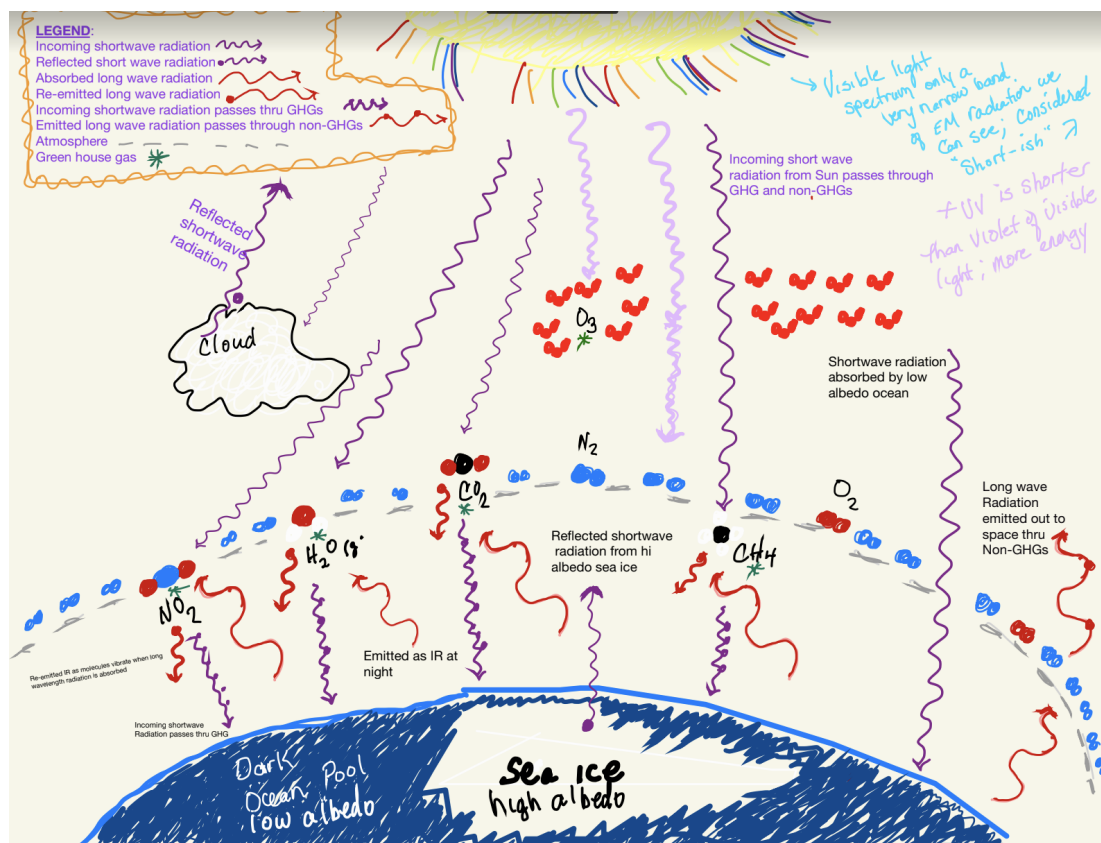 LEGEND:
Incoming shortwave radiation
Reflected short wave radiation
Absorbed long wave radiation
Re-emitted long wave radiation
Incoming shortwave radiation passes thru GHGs
Emitted long wave radiation passes through non-GHGs
Atmosphere
Green house gas
Visible light
spectrum only a
very narrow band
of EM radiation we
can see; considered
"Short-ish"
+ UV is shorter
than violet of visible
light; more energy
Incoming short wave
radiation from Sun passes through
GHG and non-GHGs
Reflected
shortwave
radiation
Cloud
O3
Shortwave radiation
absorbed by low
albedo ocean
N2
CO2
O2
Long wave
Radiation
emitted out to
space thru
Non-GHGs
H2O (g)
Reflected shortwave
radiation from hi
albedo sea ice
CH4
NO2
Emitted as IR at
night
Re-emitted IR as molecules vibrate when long
wavelength radiation is absorbed
Incoming shortwave
Radiation passes thru GHG
Dark
Ocean Pool
low albedo
Sea ice
high albedo